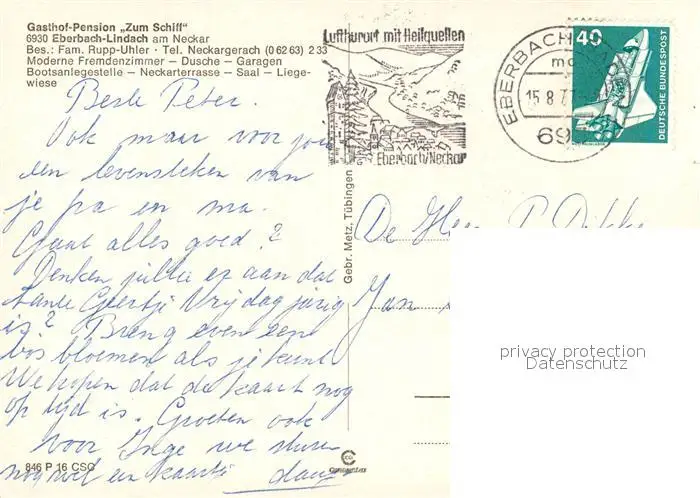 Gasthof-Pension „Zum Schiff"
6930 Eberbach-Lindach am Neckar
Bes.: Fam. Rupp-Uhler · Tel. Neckargerach (0 62 63) 2 33
Moderne Fremdenzimmer – Dusche – Garagen
Bootsanlegestelle – Neckarterrasse – Saal – Liege-
wiese
Luftkurort mit Heilquellen
Eberbach/Neckar
EBERBACH
15.8.77
69
40
DEUTSCHE BUNDESPOST
Beste Peter.
Ook maar voor jou
een levensteken van
je pa en ma.
Gaat alles goed?
Denken jullie er aan dat
tante Geertje Vrijdag jarig
is? Breng even een
bos bloemen als je kunt
We hopen dat de kaart nog
op tijd is. Groeten ook
voor Inge we sturen
nog wel een kaartje
De Heer P. 
Jan
Gebr. Metz, Tübingen
846 P 16 CSC
privacy protection
Datenschutz